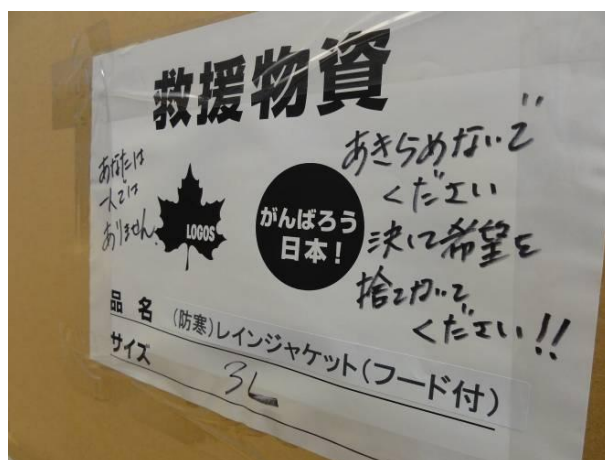 救援物資
あなたは
一人では
ありません。
LOGOS
がんばろう
日本！
あきらめないで
ください
決して希望を
捨てないで
ください!!
品 名 (防寒)レインジャケット(フード付)
サイズ 3L